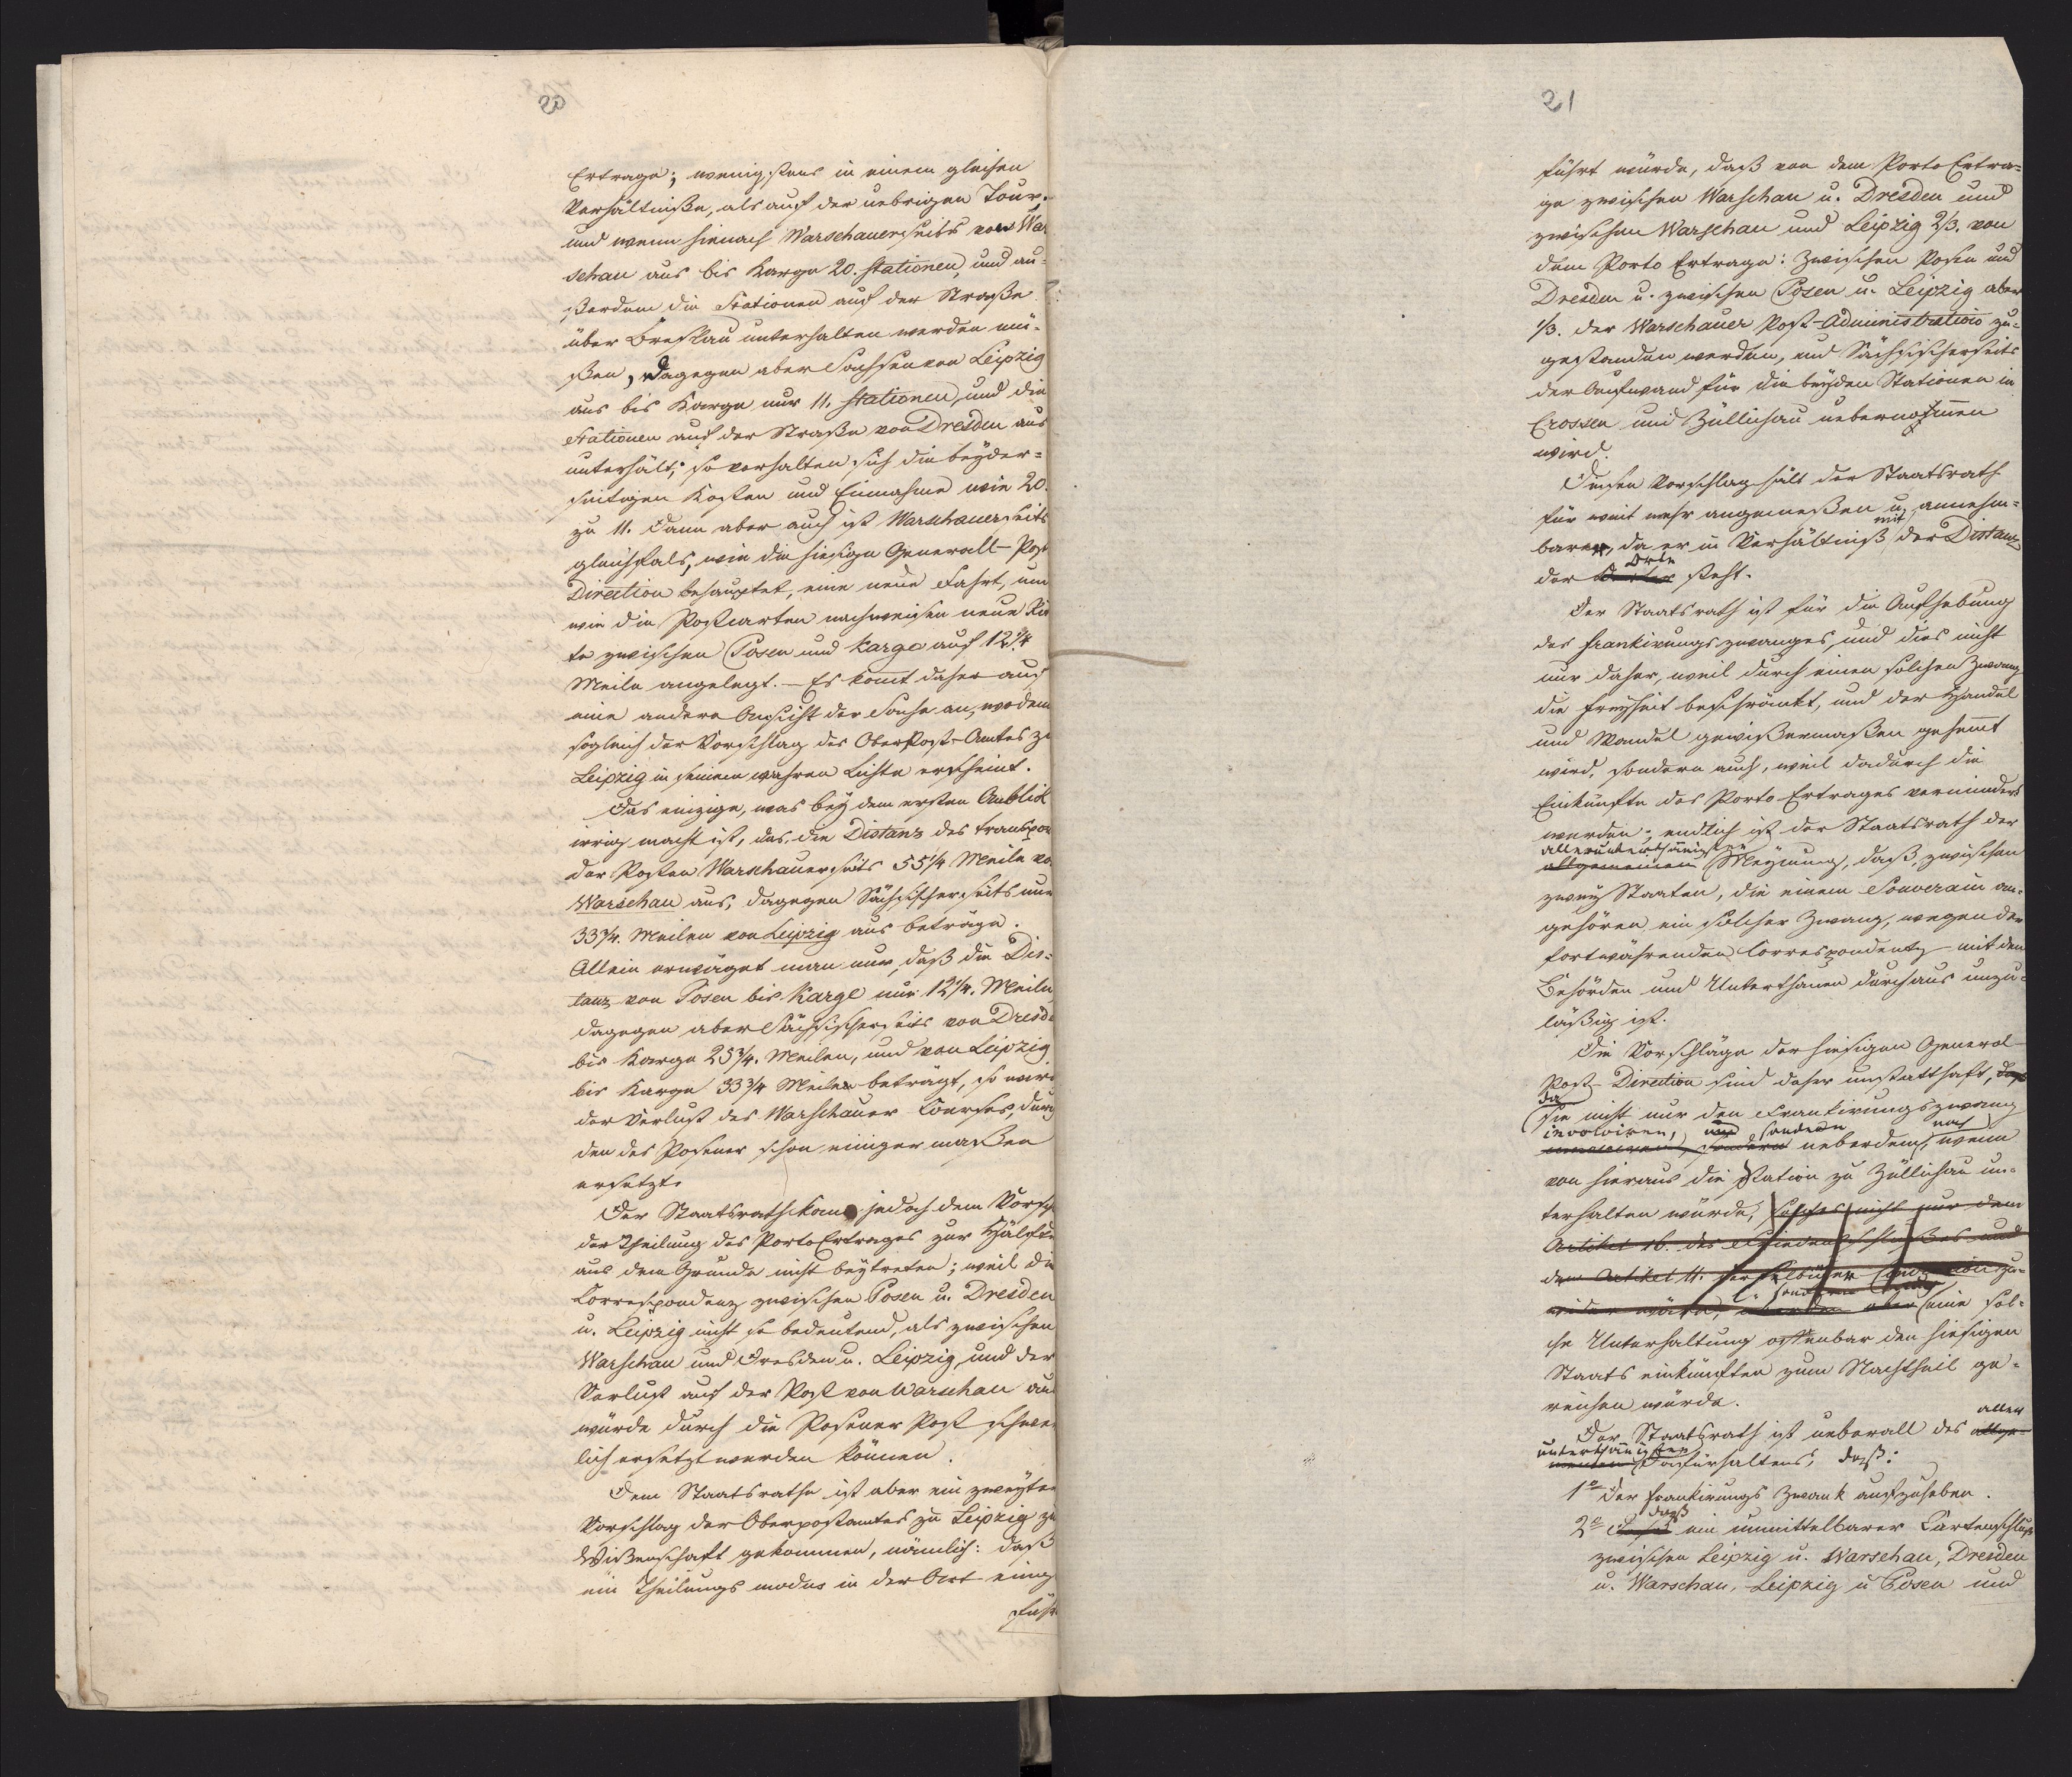 20
Ertrage; wenigstens in einem gleichen
Verhältniße, als auf der uebrigen Tour;
und wenn hienach Warschauerseits von War
schau aus bis Karge 20. Stationen, und au-
ßerdem die Stationen auf der Straße
über Breslau unterhalten werden mü-
ßen, dagegen aber Sachsen von Leipzig
aus bis Karge nur 11. Stationen, und die
Stationen auf der Straße von Dresden aus
unterhält; so verhalten sich die beyder-
seitigen Kosten und Einnahme wie 20.
zu 11. Dann aber auch ist Warschauerseits
gleichfals, wie die hiesige Generall-Post
Direction behauptet, eine neue Fahrt, und
wie die Postcarten nachweisen neue
te zwischen Posen und Karge auf 12 1/4
Meile angelegt. — Es komt daher auf
eine andere Ansicht der Sache an, wo dem
sogleich der Vorschlag des OberPost-Amtes zu
Leipzig in seinem wahren Lichte erscheint.
Das einzige, was bey dem ersten Anblik
irrig macht ist, das, die Distanz des transpor
der Posten Warschauerseits 55 1/4 Meile von
Warschau aus, dagegen Sächsischerseits nur
33 3/4. Meilen von Leipzig aus betrage.
Allein erwäget man nur, daß die Dis-
tanz von Posen bis Karge nur 12 1/4. Meile,
dagegen aber Sächsischerseits von Dresde
bis Karge 25 3/4. Meilen, und von Leipzig
bis Karge 33 3/4 Meilen beträgt, so wird
der Verlust des Warschauer Courses, durch
den des Posener schon einiger maßen
ersetzt.
Der Staatsrath kann jedoch dem Vorsch
der Theilung des PortoErtrages zur Hälfte
aus dem Grunde nicht beytreten; weil die
Correspondenz zwischen Posen u. Dresden
u. Leipzig nicht so bedeutend, als zwischen
Warschau und Dresden u. Leipzig, und der
Verlust auf der Post von Warschau aus
würde durch die Posener Post schwer
lich ersetzt werden können.
Dem Staatsrathe ist aber ein zweyter
Vorschlag des Oberpostamtes zu Leipzig zu
Wißenschaft gekommen, nämlich: daß
ein Theilungs modus in der Art einge
führ
21
führt würde, daß von dem Porto Ertra-
ge zwischen Warschau u. Dresden und
zwischen Warschau und Leipzig 2/3. von
dem Porto Ertrage: zwischen Posen und
Dresden u. zwischen Posen u. Leipzig aber
1/3. der Warschauer Post-Administration zu-
gestanden werden, und Sächsischerseits
der Aufwand für die beyden Stationen in
Crossen und Züllichau uebernommen
wird.
Diesen Vorschlag hält der Staatsrath
für weit mehr angemeßen u. annehm-
barer, da er in Verhältniß mit der Distanz
der Orte steht.
Der Staatsrath ist für die Aufhebung
des frankirungszwanges, und dies nicht
nur daher, weil durch einen solchen Zwang
die Freyheit beschränkt, und der Handel
und Wandel gewißermaßen gehemt
wird, sondern auch, weil dadurch die
Einkünfte des Porto-Ertrages vermindert
werden; endlich ist der Staatsrath der
allerunterthänigsten
allgemeinen Meynung, daß, zwischen
zwey Staaten, die einem Souverain an-
gehören ein solcher Zwang, wegen der
fortwährenden Correspondentz mit den
Behörden und Unterthanen durchaus unzu-
läßig ist.
Die Vorschläge der hiesigen General-
Post-Direction sind daher unstatthaft,
da
sie nicht nur den Frankirungszwang
involviren, sondern auch
sondern ueberdem, wenn
von hieraus die Station zu Züllichau un-
terhalten würde, solches nicht nur dem
Artikel 16. des Friedensschlußes und
dem Artikel 11. der Elbinger Convention zu-
wider wäre, eine sol-
che Unterhaltung offenbar den hiesigen
Staats einkünften zum Nachtheil ge-
reichen würde.
Der Staatsrath ist ueberall des aller
unterthänigsten
Dafürhaltens, daß:
1o der frankirungs Zwank aufzuheben.
2o daß ein unmittelbarer Cartenschluß
zwischen Leipzig u. Warschau, Dresden
u. Warschau, Leipzig u Posen und